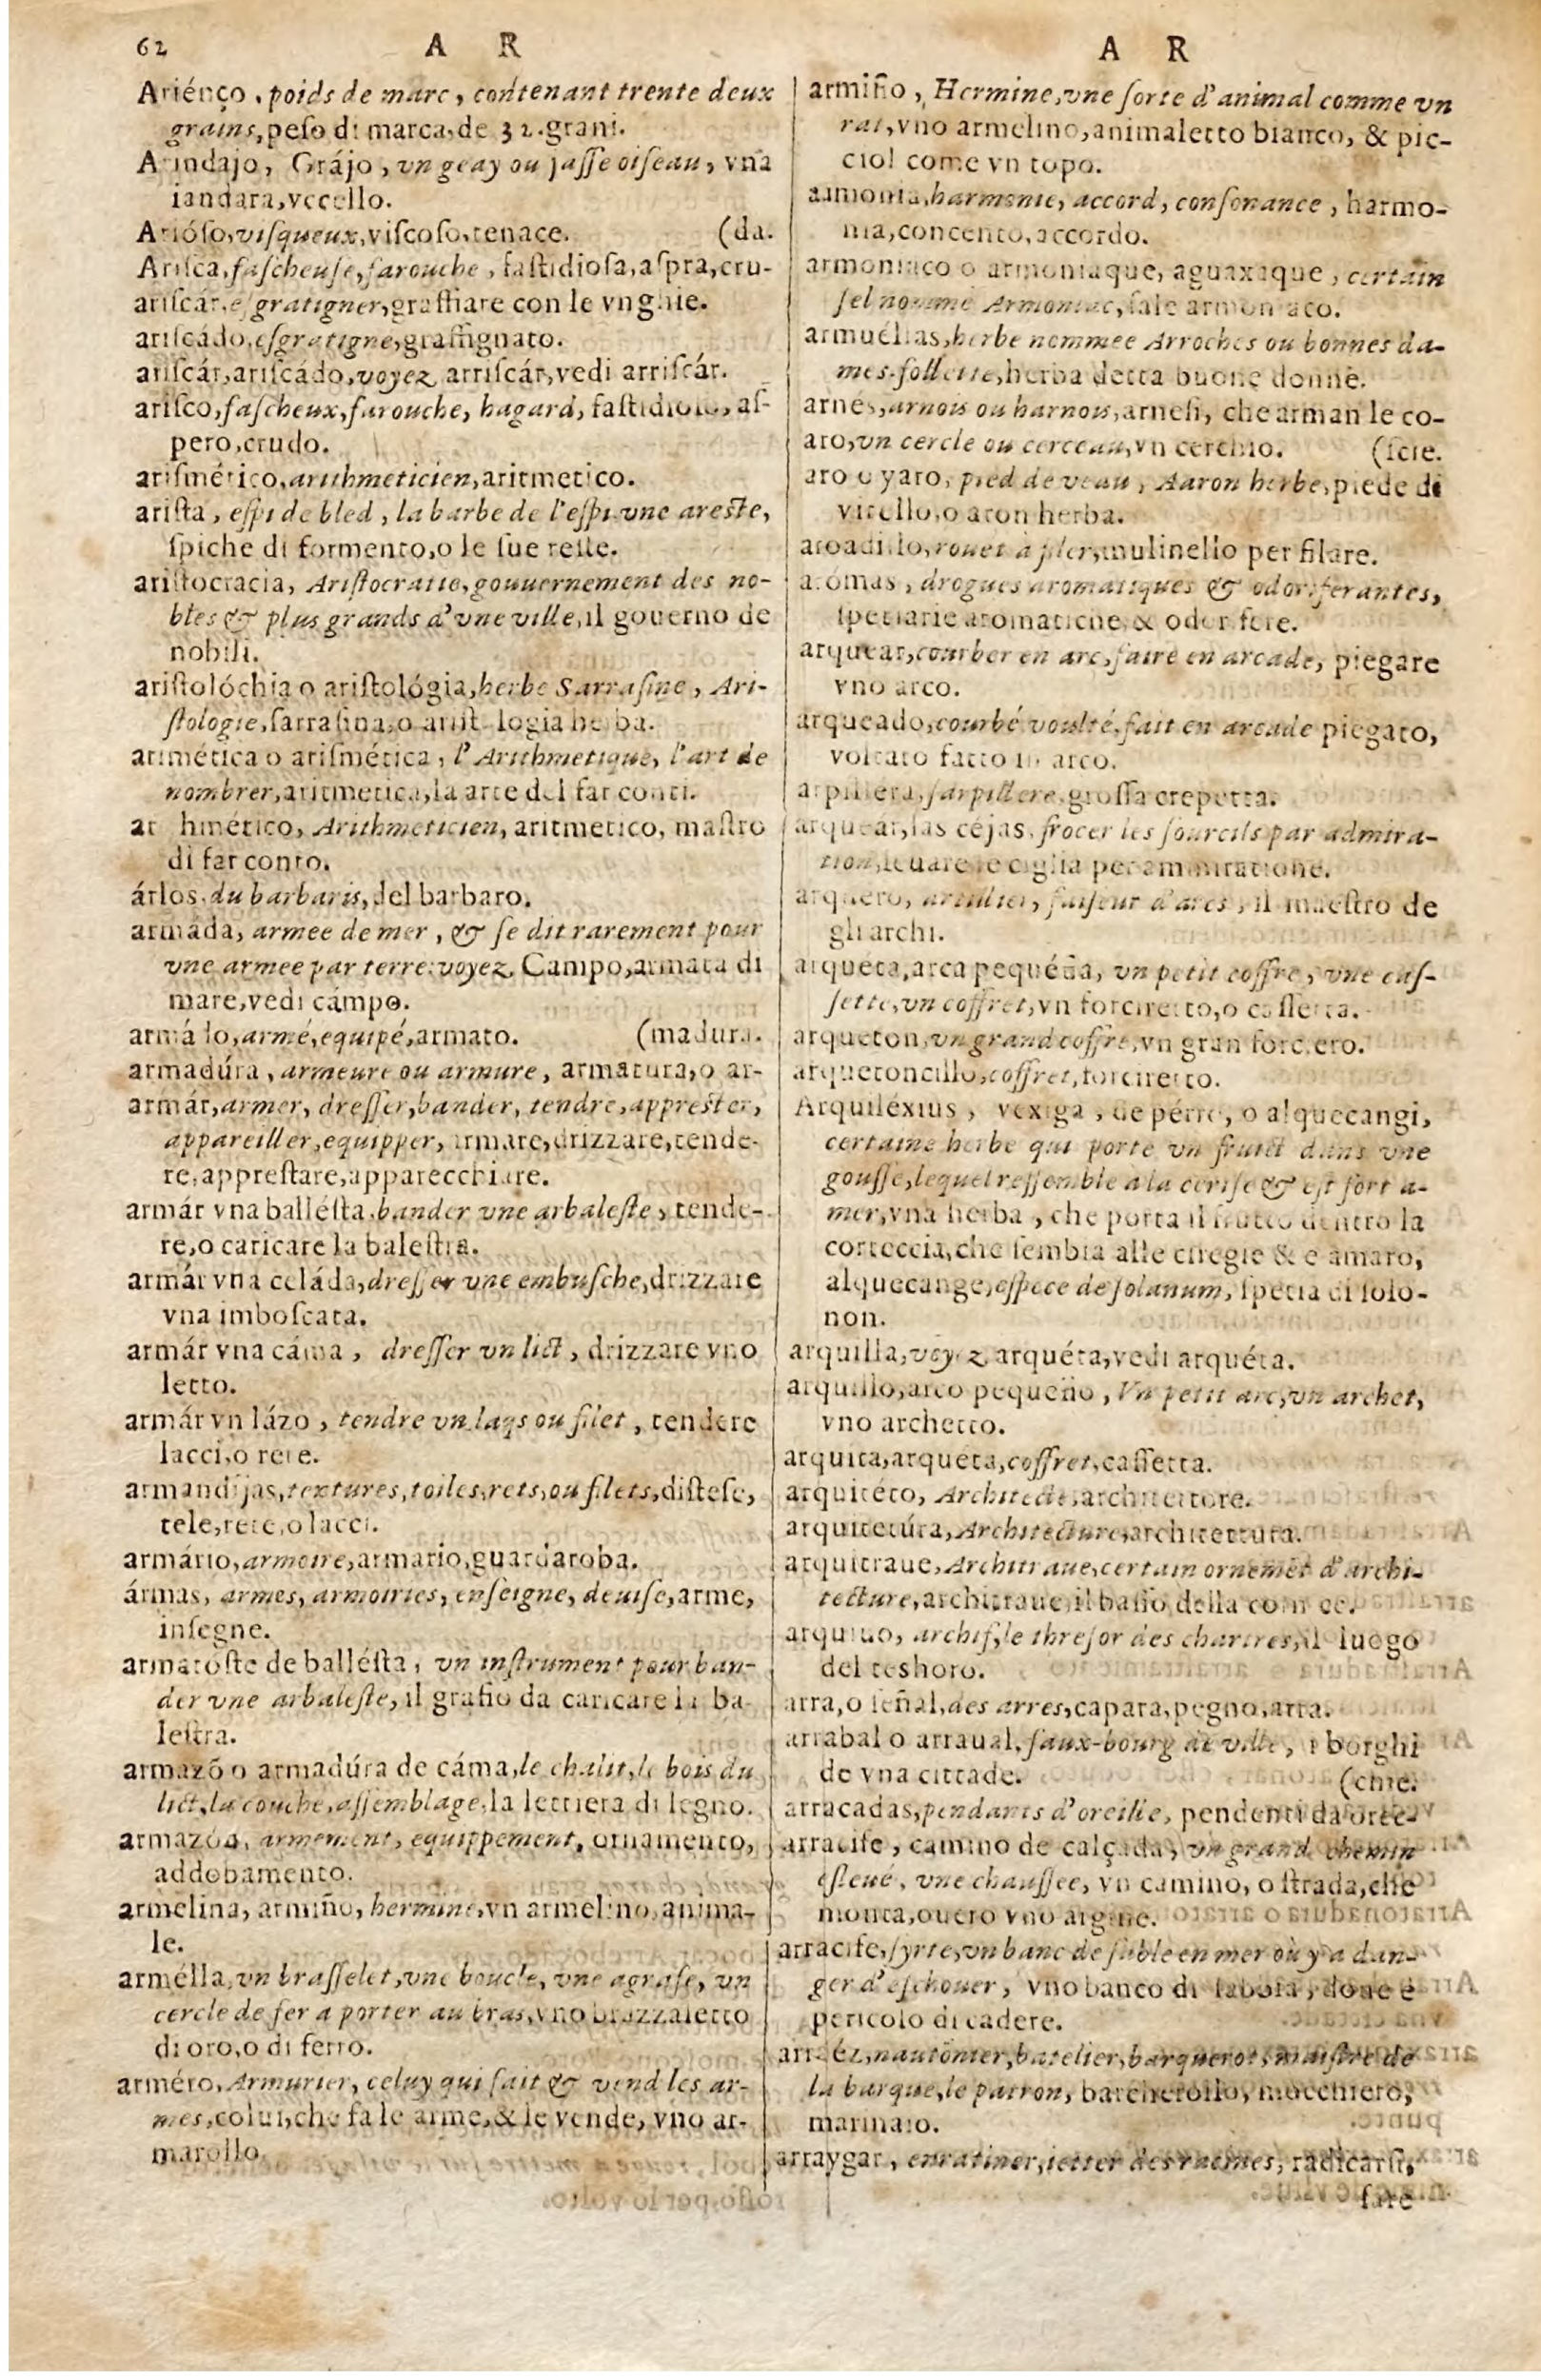 62
A R
Ariénço, poids de marc, contenant trente deux
grains, peſo di marca, de 32. grani.
Arindajo, Grájo, vn geay ou jaſſe oiſeau, vna
iandara, vccello.
Arióſo, viſqueux, viſcoſo, tenace. (da.
Ariſca, faſcheuſe, farouche, faſtidioſa, aſpra, cru-
ariſcár, eſgratigner, graffiare con le vnghie.
ariſcádo, eſgratigné, graffignato.
ariſcár, ariſcádo, voyez arriſcár, vedi arriſcár.
ariſco, faſcheux, farouche, hagard, faſtidioſo, aſ-
pero, crudo.
ariſmético, arithmeticien, aritmetico.
ariſta, eſpi de bled, la barbe de l'eſpi vne areſte,
ſpiche di formento, o le ſue reſte.
ariſtocracia, Ariſtocratie, gouuernement des no-
bles & plus grands d'vne ville, il gouerno de
nobili.
ariſtolóchia o ariſtológia, herbe Sarraſine, Ari-
ſtologie, ſarraſina, o ariſt logia herba.
arimética o ariſmética, l'Arithmetique, l'art de
nombrer, aritmetica, la arte del far conti.
ar hmético, Arithmeticien, aritmetico, maſtro
di far conto.
árlos, du barbaris, del barbaro.
armáda, armee de mer, & ſe dit rarement pour
vne armee par terre: voyez Campo, armata di
mare, vedi cámpo.
armá lo, armé, equipé, armato. (madura.
armadúra, armeure ou armure, armatura, o ar-
armár, armer, dreſſer, bander, tendre, appreſter,
appareiller, equipper, armare, drizzare, tende-
re, appreſtare, apparecchiare.
armár vna balléſta, bander vne arbaleſte, tende-
re, o caricare la baleſtra.
armár vna celáda, dreſſer vne embuſche, drizzare
vna imboſcata.
armár vna cáma, dreſſer vn lict, drizzare vno
letto.
armár vn lázo, tendre vn laqs ou filet, tendere
lacci, o rete.
armandijas, textures, toiles, rets, ou filets, diſteſe,
tele, rete, o lacci.
armário, armoire, armario, guardaroba.
ármas, armes, armoiries, enſeigne, deuiſe, arme,
inſegne.
armatóſte de balléſta, vn inſtrument pour ban-
der vne arbaleſte, il grafio da caricare la ba-
leſtra.
armazõ o armadúra de cáma, le chalit, le bois du
lict, la couche, aſſemblage, la lettiera di legno.
armazón, armement, equippement, ornamento,
addobamento.
armelina, armiño, hermine, vn armelino, anima-
le.
armélla, vn braſſelet, vne boucle, vne agrafe, vn
cercle de fer a porter au bras, vno brazzaletto
di oro, o di ferro.
arméro, Armurier, celuy qui fait & vend les ar-
mes, colui, che fa le arme, & le vende, vno ar-
marollo.
A R
armiño, Hermine, vne ſorte d'animal comme vn
rat, vno armelino, animaletto bianco, & pic-
ciol come vn topo.
armonia, harmonie, accord, conſonance, harmo-
nia, concento, accordo.
armoniaco o armoniaque, aguaxaque, certain
ſel nommé Armoniac, ſale armoniaco.
armuéllas, herbe nommee Arroches ou bonnes da-
mes. follette, herba detta buone donne.
arnés, arnois ou harnois, arneſi, che arman le co-
aro, vn cercle ou cerceau, vn cerchio. (ſcie.
aro o yaro, pied de veau, Aaron herbe, piede di
vitello, o aron herba.
aroadillo, rouet à filer, mulinello per filare.
arómas, drogues aromatiques & odoriferantes,
ſpetiarie aromatiche & odorifere.
arquear, courber en arc, faire en arcade, piegare
vno arco.
arqueado, courbé voulté, fait en arcade piegato,
voltato fatto in arco.
arpillera, ſarpillere, groſſa crepetta.
arquear, las céjas, frocer les ſourcils par admira-
tion, leuare le ciglia per ammiratione.
arquero, artillier, faiſeur d'arcs, il maeſtro de
gli archi.
arquéta, arca pequéña, vn petit coffre, vne caſ-
ſette, vn coffret, vn forciretto, o caſſetta.
arqueton, vn grand coffre, vn gran forciero.
arquetoncillo, coffret, forciretto.
Arquiléxius, vexiga, de pérro, o alquecangi,
certaine herbe qui porte vn fruict dans vne
gouſſe, lequel reſſemble à la ceriſe & eſt fort a-
mer, vna herba, che porta il frutto dentro la
corteccia, che ſembia alle ciregie & e amaro,
alquecange, eſpece de ſolanum, ſpetia di ſolo-
non.
arquilla, voyez arquéta, vedi arquéta.
arquillo, arco pequeño, Vn petit arc, vn archet,
vno archetto.
arquita, arquéta, coffret, caſſetta.
arquitéto, Architecte, architettore.
arquitetúra, Architecture, architettura.
arquitraue, Architraue, certain ornemēt d'archi-
tecture, architraue, il baſſo della cornice.
arquiuo, archif, le threſor des chartres, il luogo
del teshoro.
arra, o ſeñal, des arres, capara, pegno, arra.
arrabal o arraual, faux-bourg de ville, i borghi
de vna cittade. (chie.
arracadas, pendants d'oreille, pendenti da orec-
arracife, camino de calçada, vn grand chemin
eſleué, vne chauſſee, vn camino, o ſtrada, che
monta, ouero vno argine.
arracife, ſyrte, vn banc de ſable en mer où y a dan-
ger d'eſchouer, vno banco di ſabbia, doue è
pericolo di cadere.
arraéz, nautōnier, batelier, barquerot, maiſtre de
la barque, le patron, barcherollo, nocchiero,
marinaio.
arraygar, enraciner, ietter des racines, radicarſi,
fare